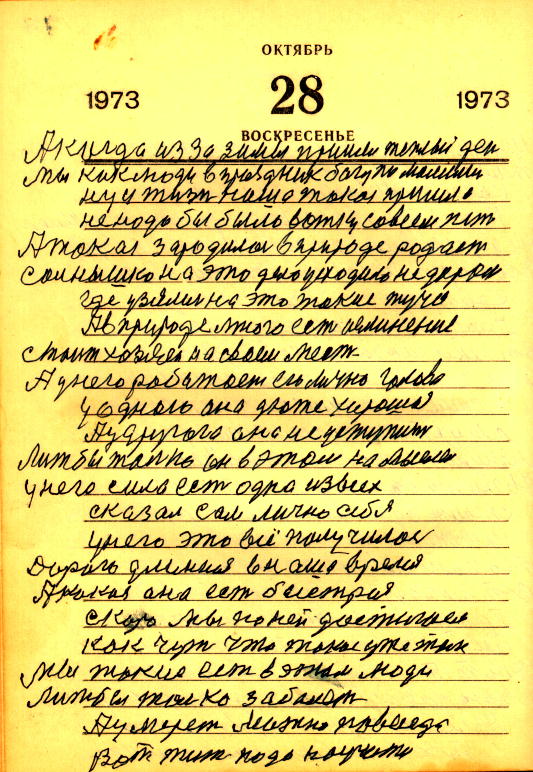 ОКТЯБРЬ
1973 28 1973
ВОСКРЕСЕНЬЕ
А когда из за зимы пришли теплый ден
мы как люди в праздник
ну и жизн наша такая пришла
не надо бы было вот и совсем нет
А такая зародилас в природе родает
солнышко на это
где узялис на это такие тучи
А в природе много ест
стоит хозяен на своем мест
А у него работает его лично голова
у одного она дюже хороша
А у другого она не уступит
Лиж бы только он в этом
у него сила ест одна из всех
сказал сам лично себя
у него это всё получилос
Дорога длинная в наше время
Акакая она ест быстрая
Скоро мы по ней
как чут что такое уже там
мы такие ест в этом люди
лиж бы только заболет
А умерет можно повсегда
Вот жит надо научит